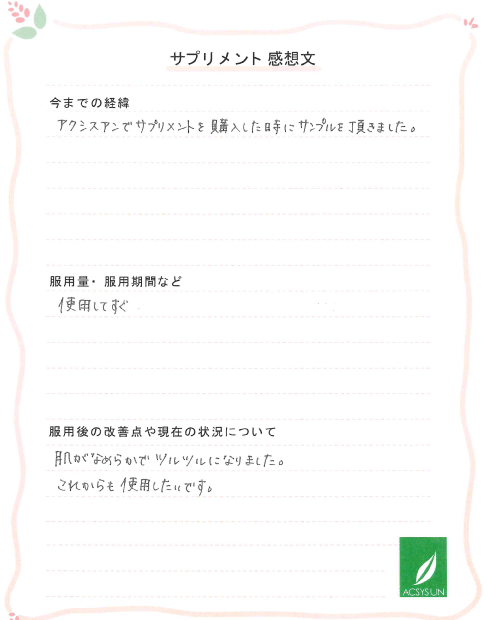 サプリメント 感想文
今までの経緯
アクシスアンでサプリメントを購入した時にサンプルを頂きました。
服用量・服用期間など
使用してすぐ
服用後の改善点や現在の状況について
肌がなめらかでツルツルになりました。
これからも使用したいです。
ACSYSUN